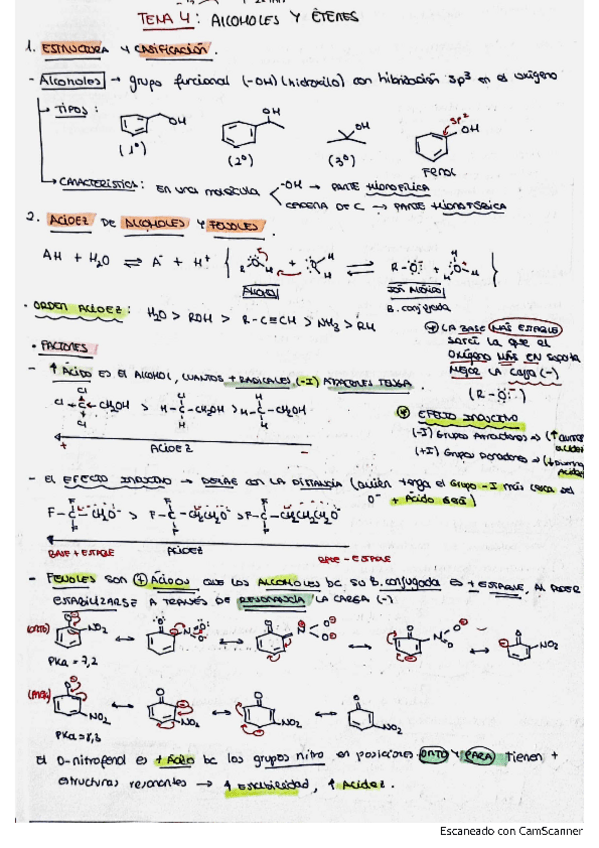 TEMA 4: ALCOHOLES Y ÉTERES
1. ESTRUCTURA Y CASIFICACIÓN.
- Alcoholes → grupo funcional (-OH) (hidroxilo) con hibridación sp³ en el oxígeno
→ TIPOS:
OH OH OH sp² OH
(1º) (2º) (3º) Fenol
→ CARACTERÍSTICA: En una molécula -OH → PARTE HIDROFÍLICA
CADENA DE C → PARTE HIDROFÓBICA
2. ACIDEZ DE ALCOHOLES Y FENOLES.
AH + H₂O ⇌ A⁻ + H⁺
ALCOHOL
B. conjugada
· ORDEN ACIDEZ: H₂O > ROH > R-C≡CH > NH₃ > RH
LA BASE MÁS ESTABLE
será la que el
OXÍGENO MÁS EN soporta
MEJOR LA carga (-)
(R-O⁻)
· FACTORES
- ↑ Ácido es el alcohol, cuantos + RADICALES (-I) ATRAYENTES TENGA.
+ ACIDEZ -
EFECTO INDUCTIVO
(-I) Grupos Atractores ⇒
(+I) Grupos Donadores ⇒
- El EFECTO INDUCTIVO → DECAE CON LA DISTANCIA (quién tenga el Grupo -I más cerca del
O⁻ + Ácido será)
BASE + ESTABLE ACIDEZ BASE - ESTABLE
- FENOLES SON (+) ÁCIDOS que los ALCOHOLES bc su B. conjugada es + ESTABLE, AL PODER
ESTABILIZARSE A TRAVÉS DE RESONANCIA LA CARGA (-)
(orto) NO₂ NO₂
pKa = 7,2
(meta) NO₂ NO₂ NO₂ NO₂
El O-nitrofenol es + Ácido bc los grupos nitro en posiciones ORTO Y PARA tienen +
estructuras resonantes → ↑ estabilidad, ↑ Acidez.
Escaneado con CamScanner